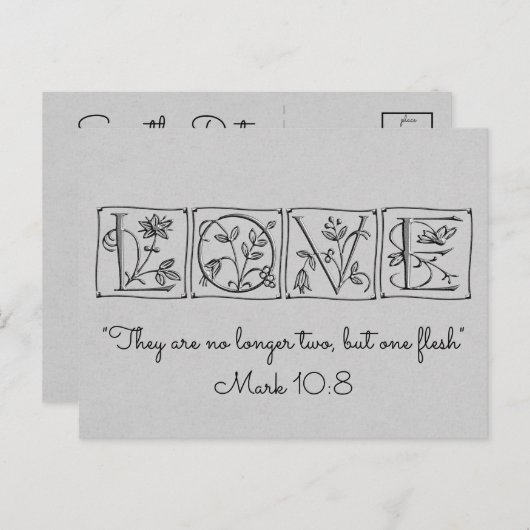 place
LOVE
"They are no longer two, but one flesh"
Mark 10:8